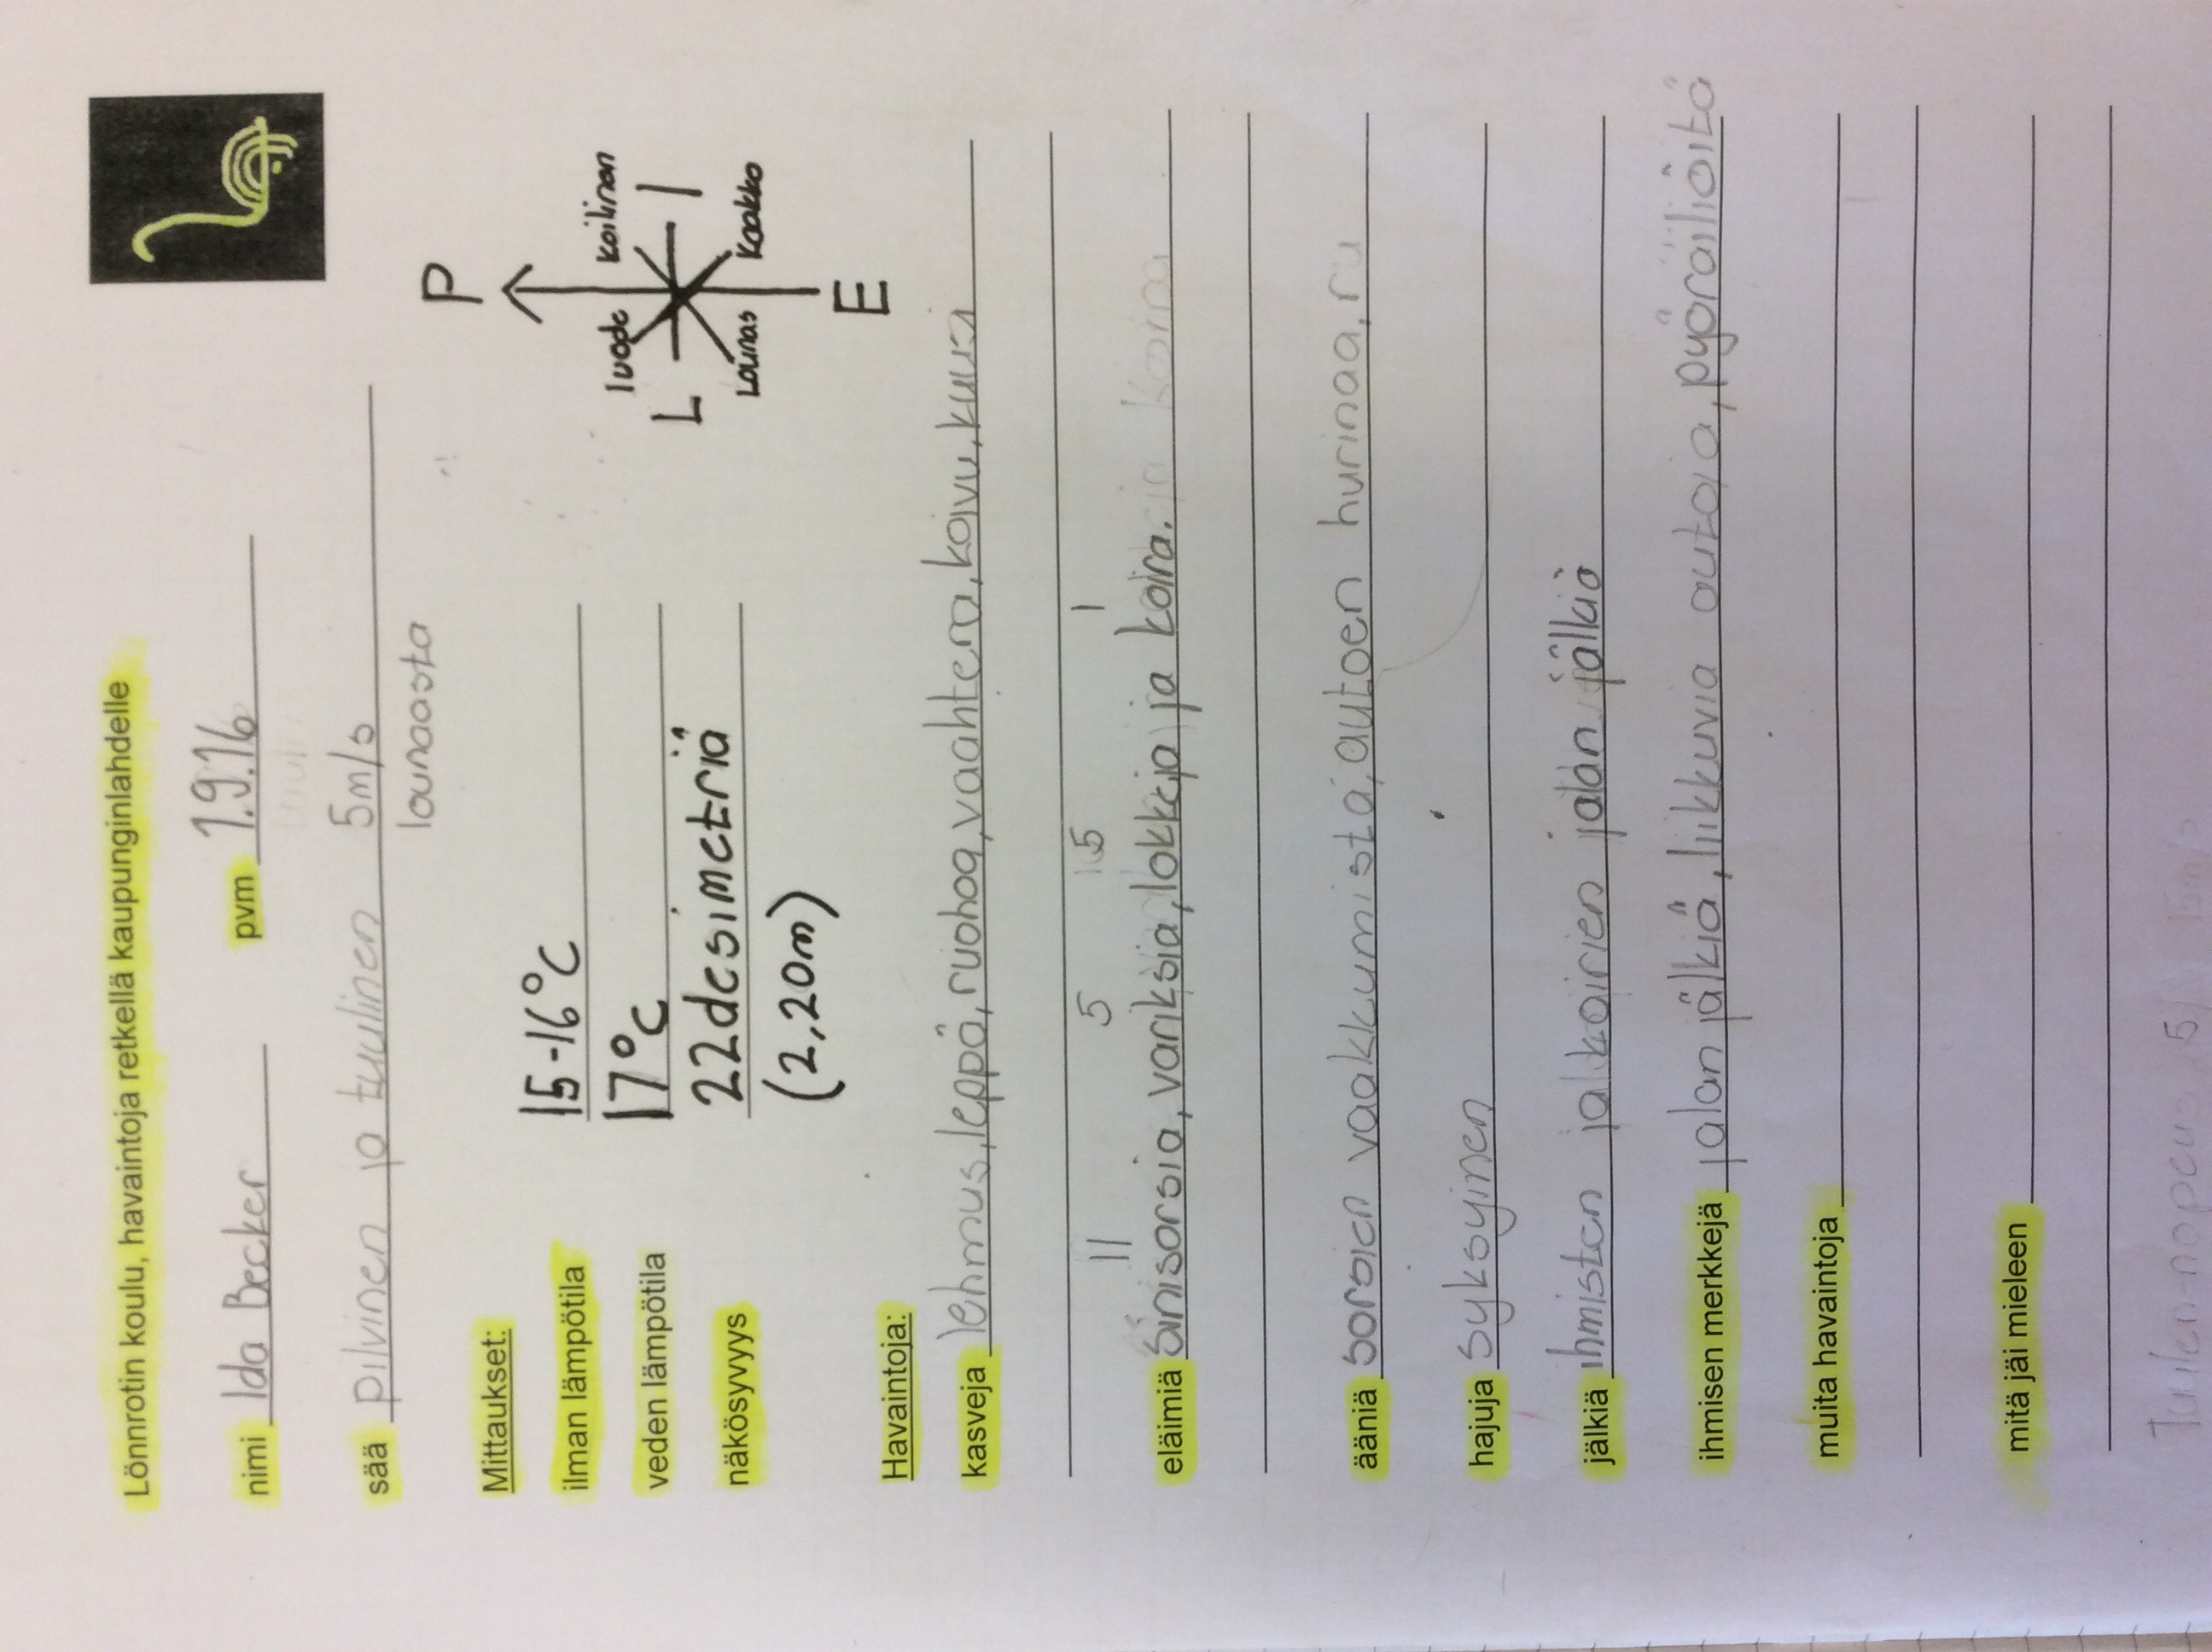 Lönnrotin koulu, havaintoja retkellä kaupunginlahdelle
nimi Ida Becker pvm 1.9.16
sää pilvinen ja tuulinen 5m/s
lounaasta
P
luode koilinen
L I
Lounas Kaakko
E
Mittaukset:
ilman lämpötila 15-16°C
veden lämpötila 17°C
näkösyvyys 22desimetriä
(2,20m)
Havaintoja:
kasveja lehmus,leppä,ruohoa,vaahtera,koivu,kuusi
11 5 15 1
eläimiä Sinisorsia,variksia,lokkeja ja koira.
ääniä sorsien vaakkumista,autoen hurinaa,
hajuja syksyinen
jälkiä ihmisten ja koirien jalan jälkiä
ihmisen merkkejä jalan jälkiä,liikkuvia autoja,pyöräiliöitä
muita havaintoja
mitä jäi mieleen
Tuulen-nopeus 5